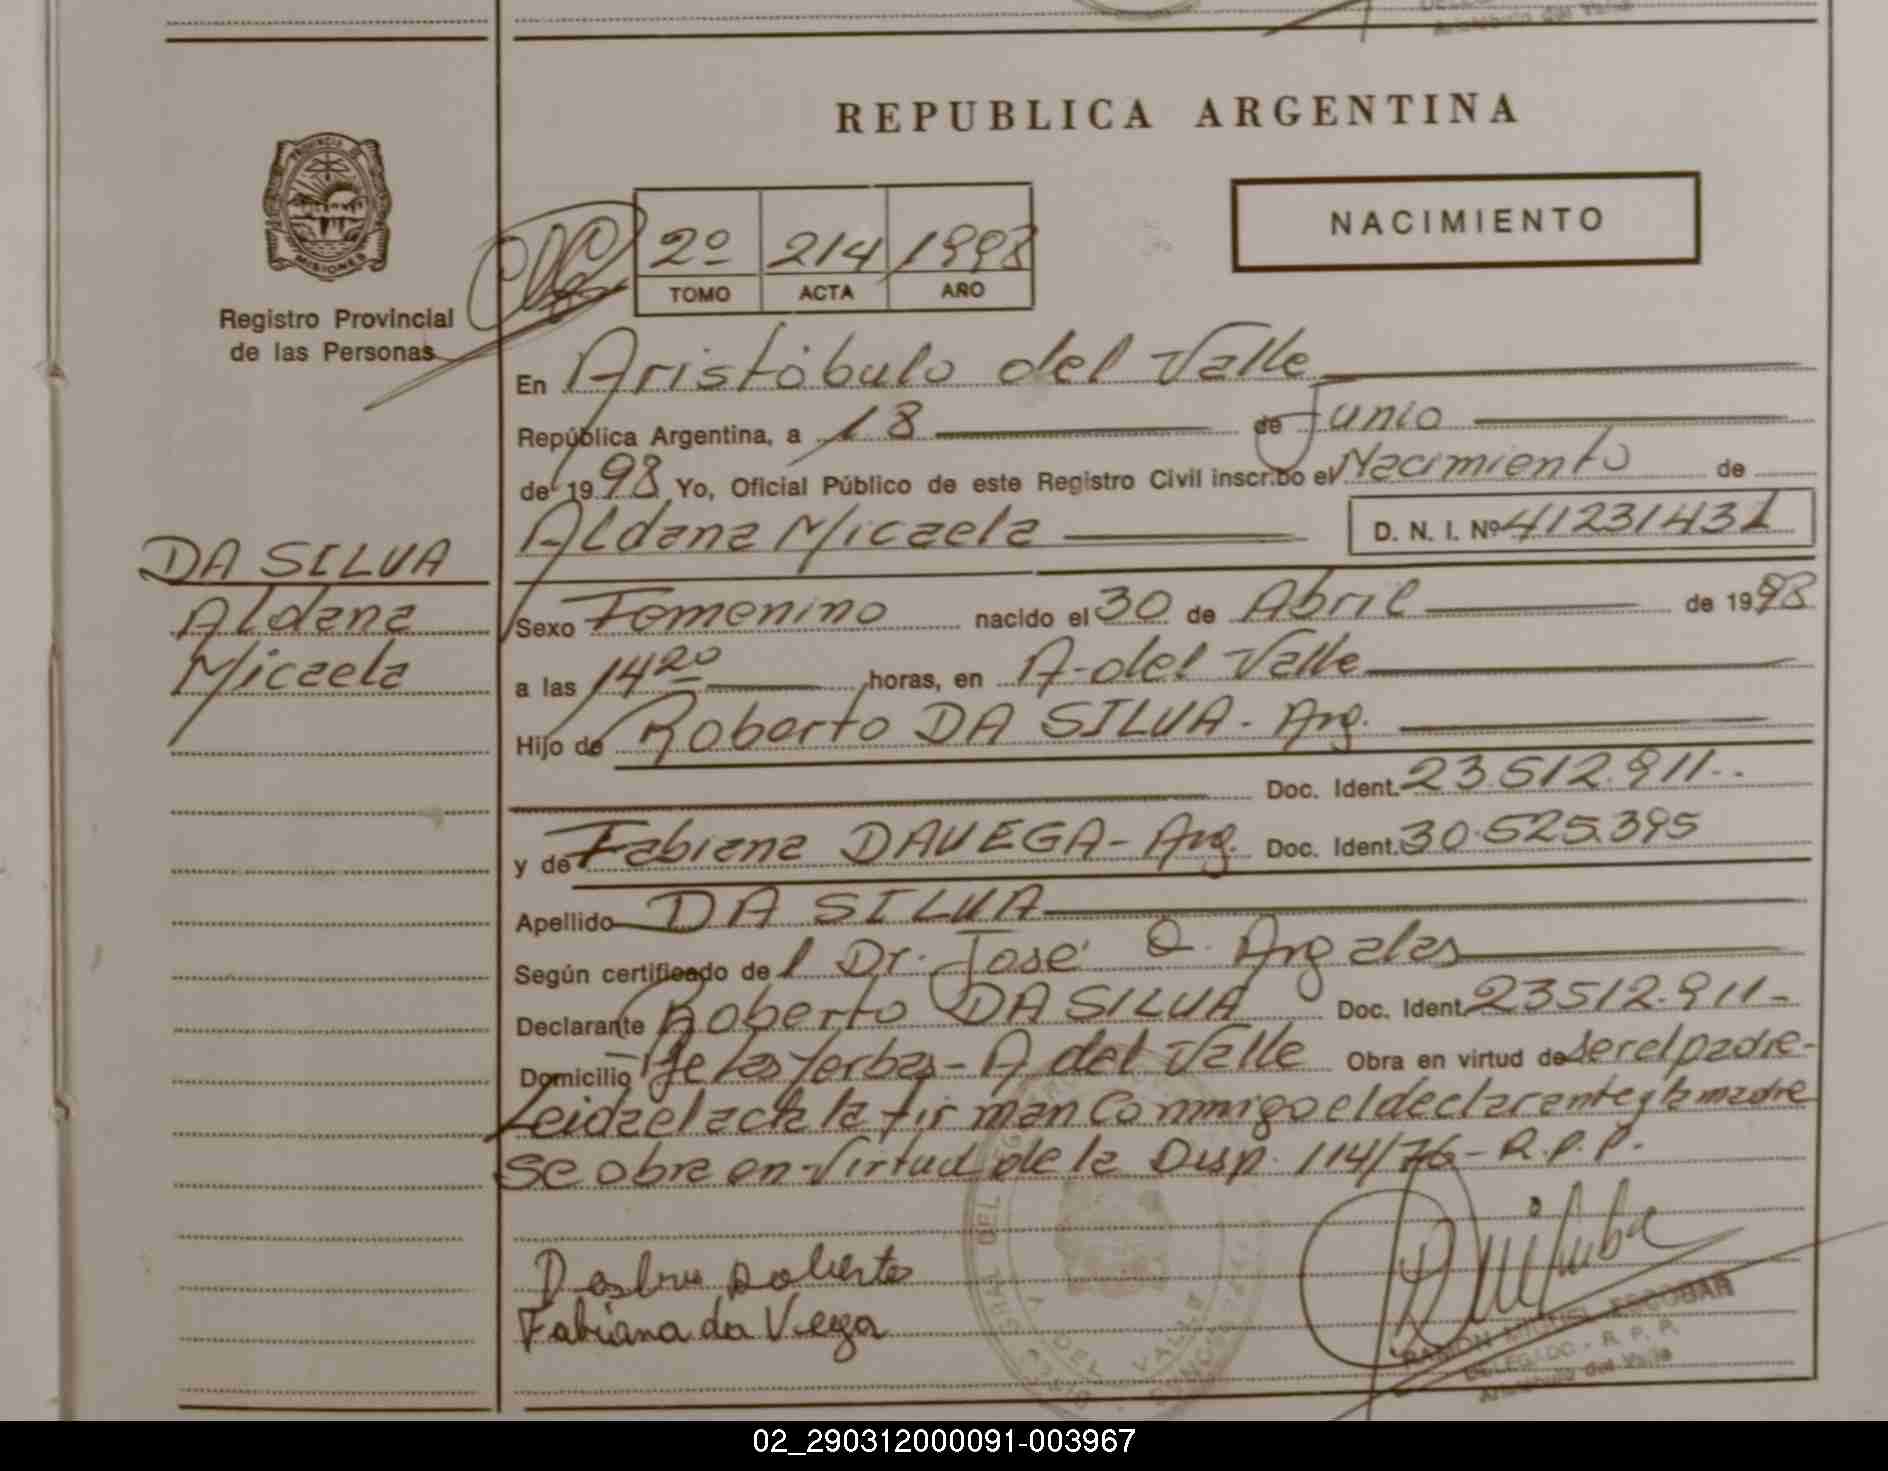 REPUBLICA ARGENTINA
PROVINCIA DE
MISIONES
Registro Provincial
de las Personas
2º 214 1998
TOMO ACTA AÑO
NACIMIENTO
En Aristóbulo del Valle
República Argentina, a 18 de Junio
de 1998 Yo, Oficial Público de este Registro Civil inscribo el Nacimiento de
Aldana Micaela D. N. I. Nº 41231431
DA SILVA
Aldana
Micaela
Sexo Femenino nacido el 30 de Abril de 1998
a las 14 20 horas, en A. del Valle
Hijo de Roberto DA SILVA - Arg.
Doc. Ident. 23.512.911..
y de Fabiana DAVEGA - Arg. Doc. Ident. 30.525.395
Apellido DA SILVA
Según certificado de l Dr. José O. Argalas
Declarante Roberto DA SILVA Doc. Ident. 23512.911-
Domicilio las Yerbas - A del Valle Obra en virtud de ser el padre-
Leida el acta la firman Conmigo el declarante y la madre
se obra en virtud de la Disp. 114/76 - R.P.P.
Fabiana da Vega
RAMON MIGUEL ESCOBAR
DELEGADO - R. P. P.
Aristóbulo del Valle
02_290312000091-003967